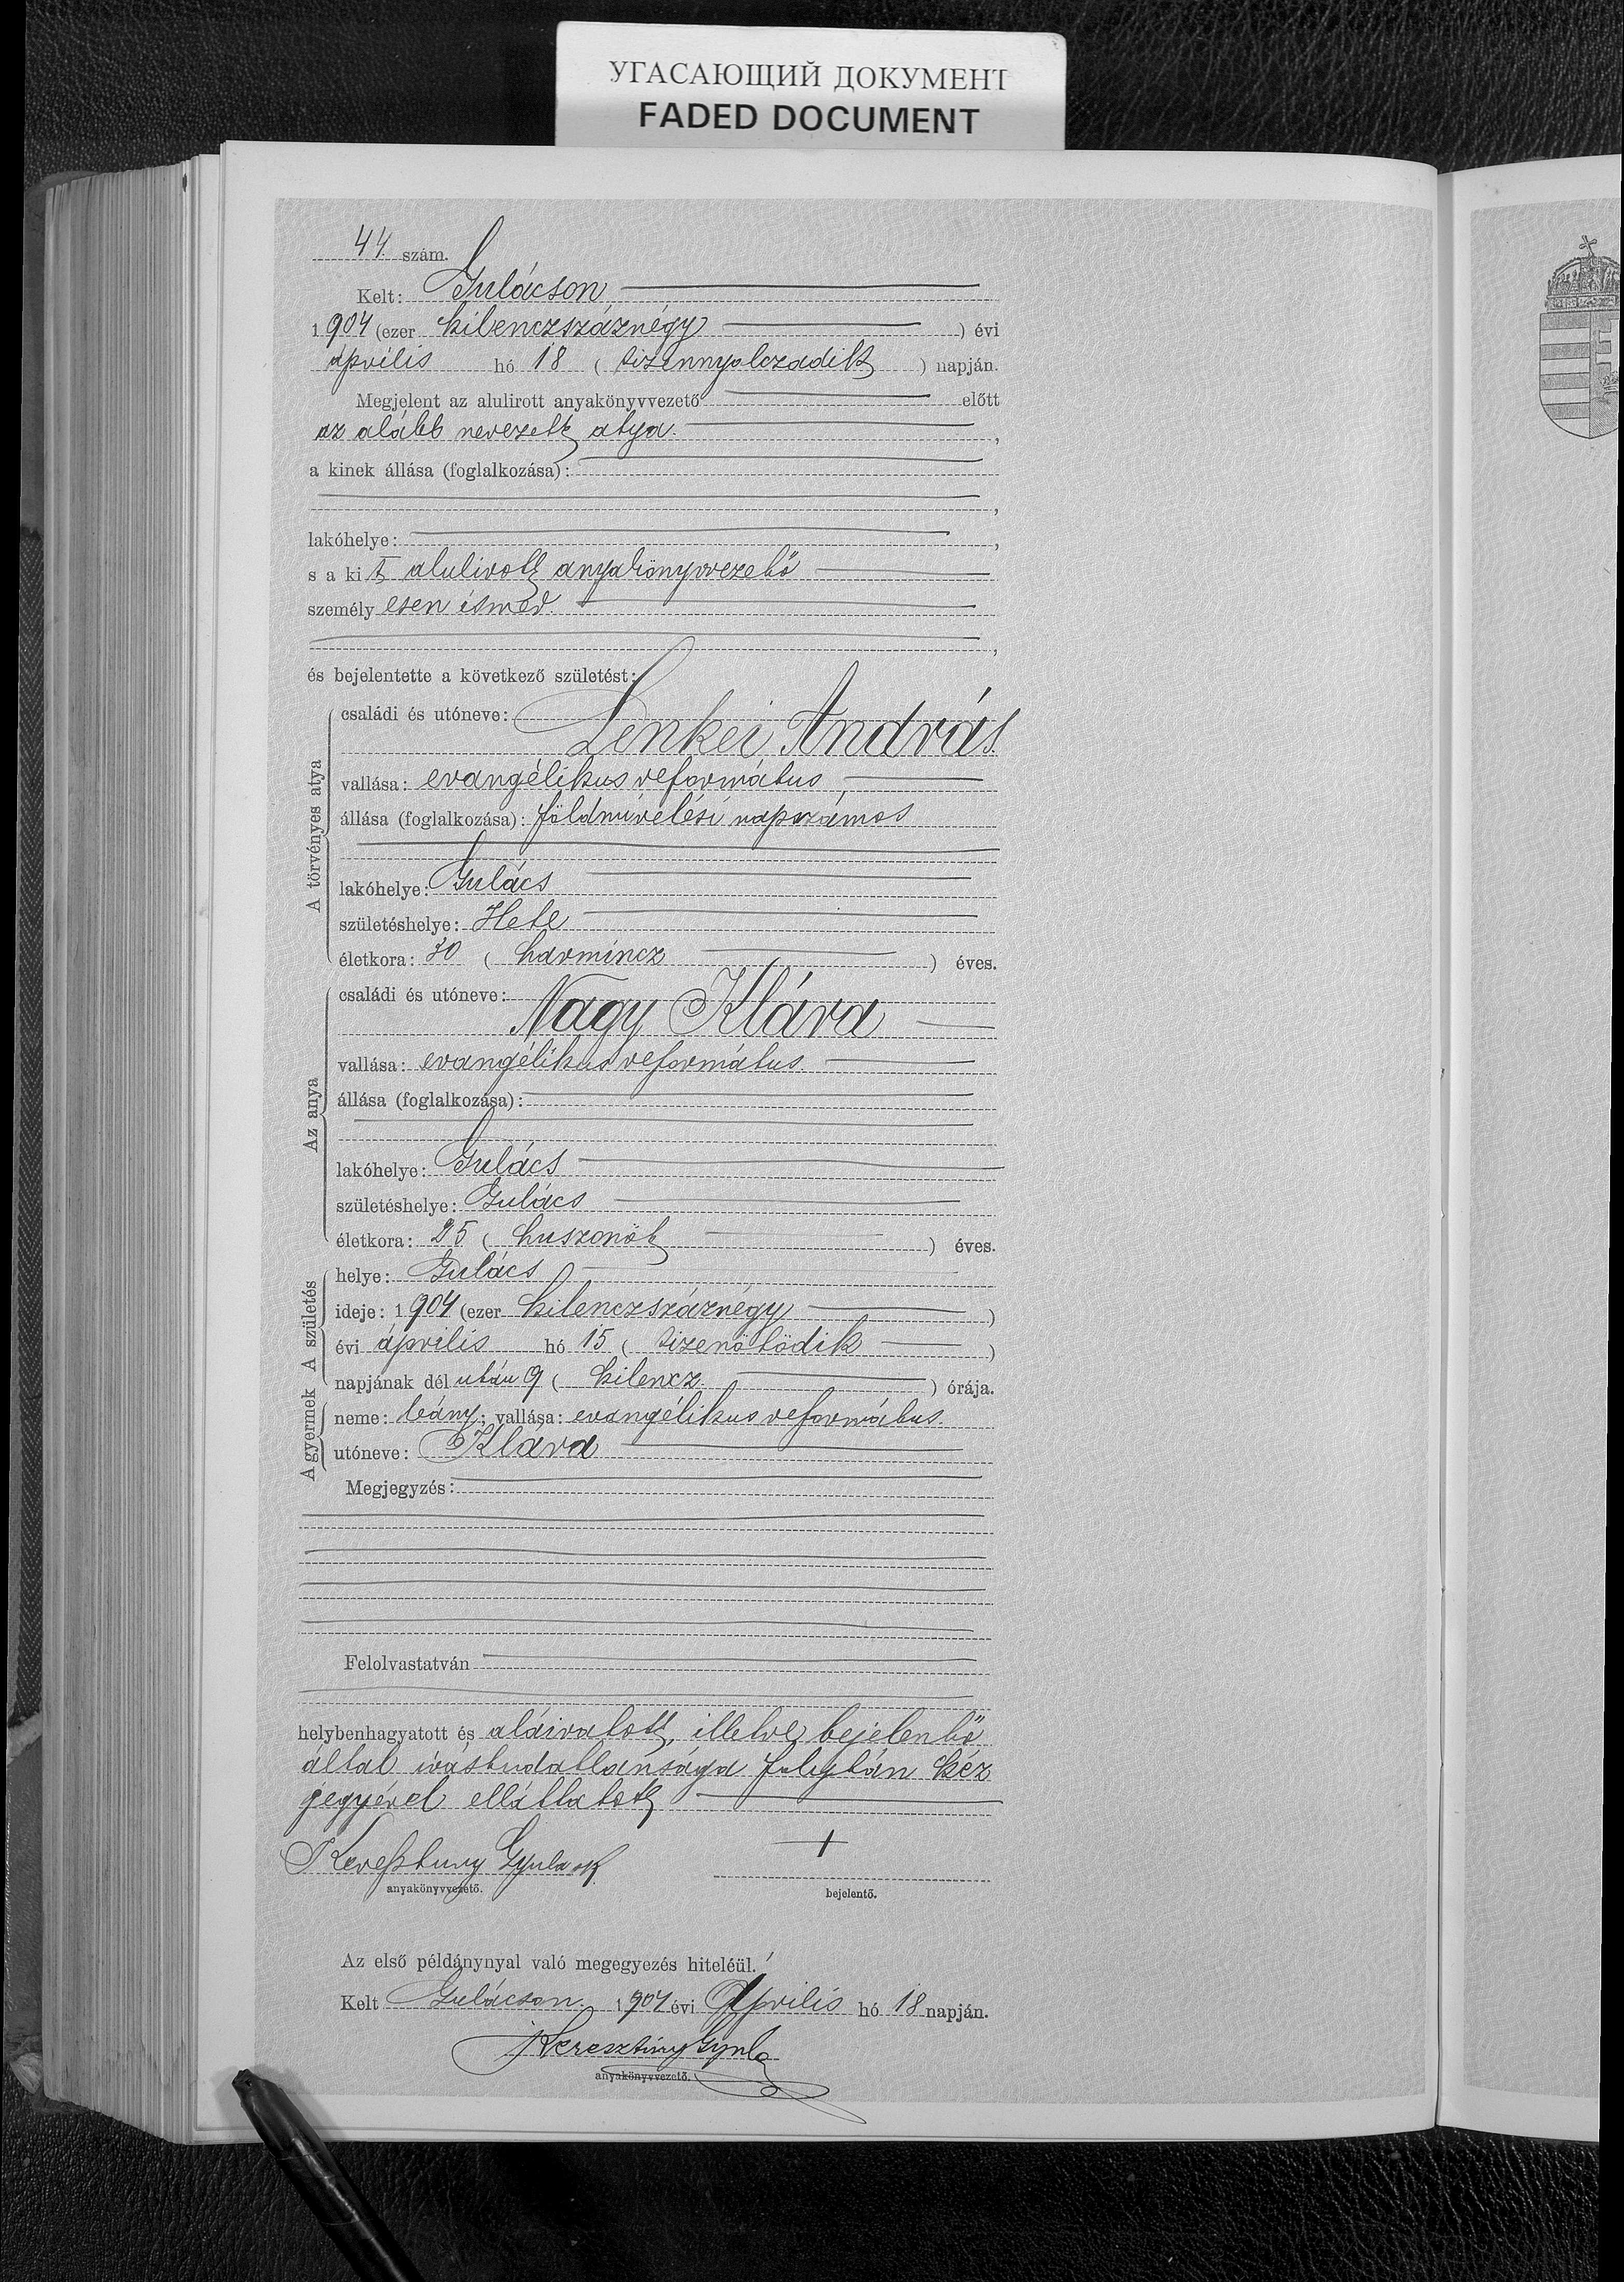 УГАСАЮЩИЙ ДОКУМЕНТ
FADED DOCUMENT
44. szám.
Kelt: Gulácson
1904 (ezer kilenczszáznégy ) évi
április hó 18 ( tizennyolczadik ) napján.
Megjelent az alulirott anyakönyvvezető előtt
az alább nevezett atya.
a kinek állása (foglalkozása):
lakóhelye:
s a kit alulirott anyakönyvvezető
személyesen ismer.
és bejelentette a következő születést:
A törvényes atya
családi és utóneve:
Lenkei András
vallása: evangélikus református
állása (foglalkozása): földmivelési napszámos
lakóhelye: Gulács
születéshelye: Hete
életkora: 30 ( harmincz ) éves.
Az anya
családi és utóneve:
Nagy Klára
vallása: evangélikus református.
állása (foglalkozása):
lakóhelye: Gulács
születéshelye: Gulács
életkora: 25 ( huszonöt ) éves.
A születés
helye: Gulács
ideje: 1904 (ezer kilenczszáznégy )
évi április hó 15 ( tizenötödik )
napjának dél után 9 ( kilencz ) órája.
A gyermek
neme: leány; vallása: evangélikus református.
utóneve: Klára
Megjegyzés:
Felolvastatván
helybenhagyatott és aláiratott, illetve bejelentő
által irástudatlansága folytán kéz
jegyével elláttatott
Keresztury Gyula sk
+
anyakönyvvezető.
bejelentő.
Az első példánynyal való megegyezés hiteléül.
Kelt Gulácson 1904 évi Április hó 18 napján.
Keresztury Gyula
anyakönyvvezető.